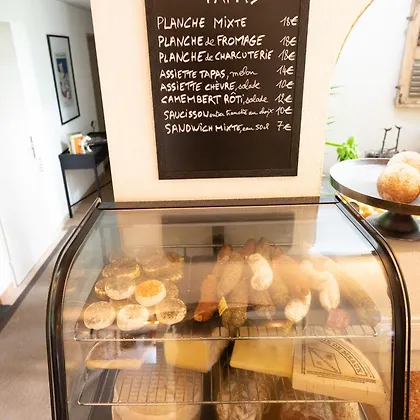 TAPAS
PLANCHE MIXTE 18€
PLANCHE de FROMAGE 18€
PLANCHE de CHARCUTERIE 18€
ASSIETTE TAPAS, melon 14€
ASSIETTE CHÈVRE, salade 10€
CAMEMBERT RÔTI, salade 12€
SAUCISSON au choix 10€
SANDWICH MIXTE, 7€